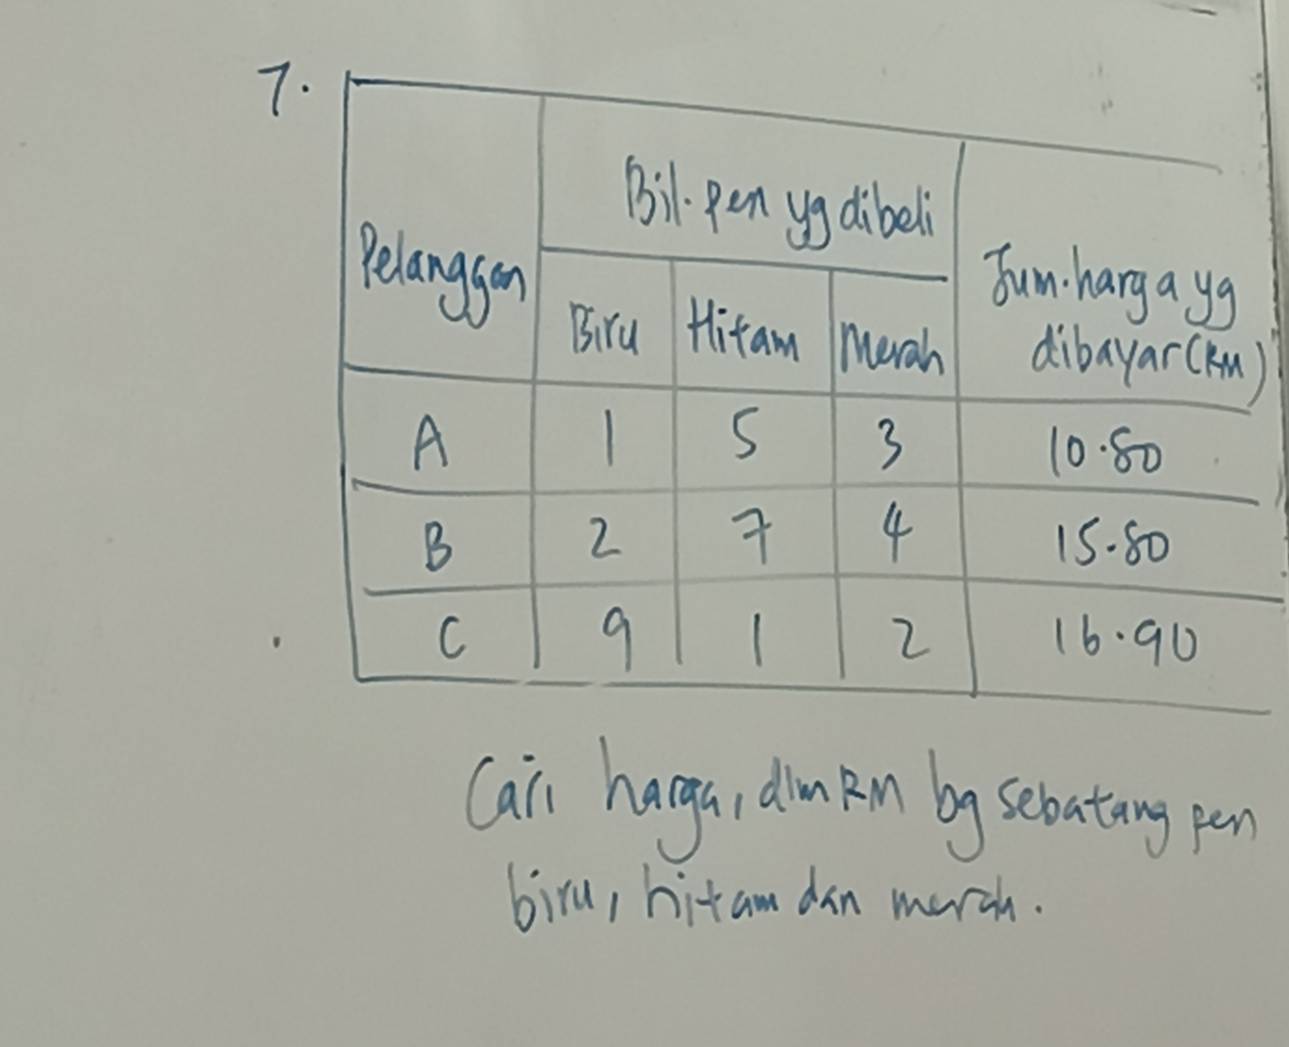 7.
Bil. pen yg dibeli
Pelanggan
Jum. harga yg
dibayar (RM)
Biru Hitam Merah
A 1 5 3 10.80
B 2 7 4 15.80
C 9 1 2 16.90
Cari harga, dlm RM bg sebatang pen
biru, hitam dan merah.